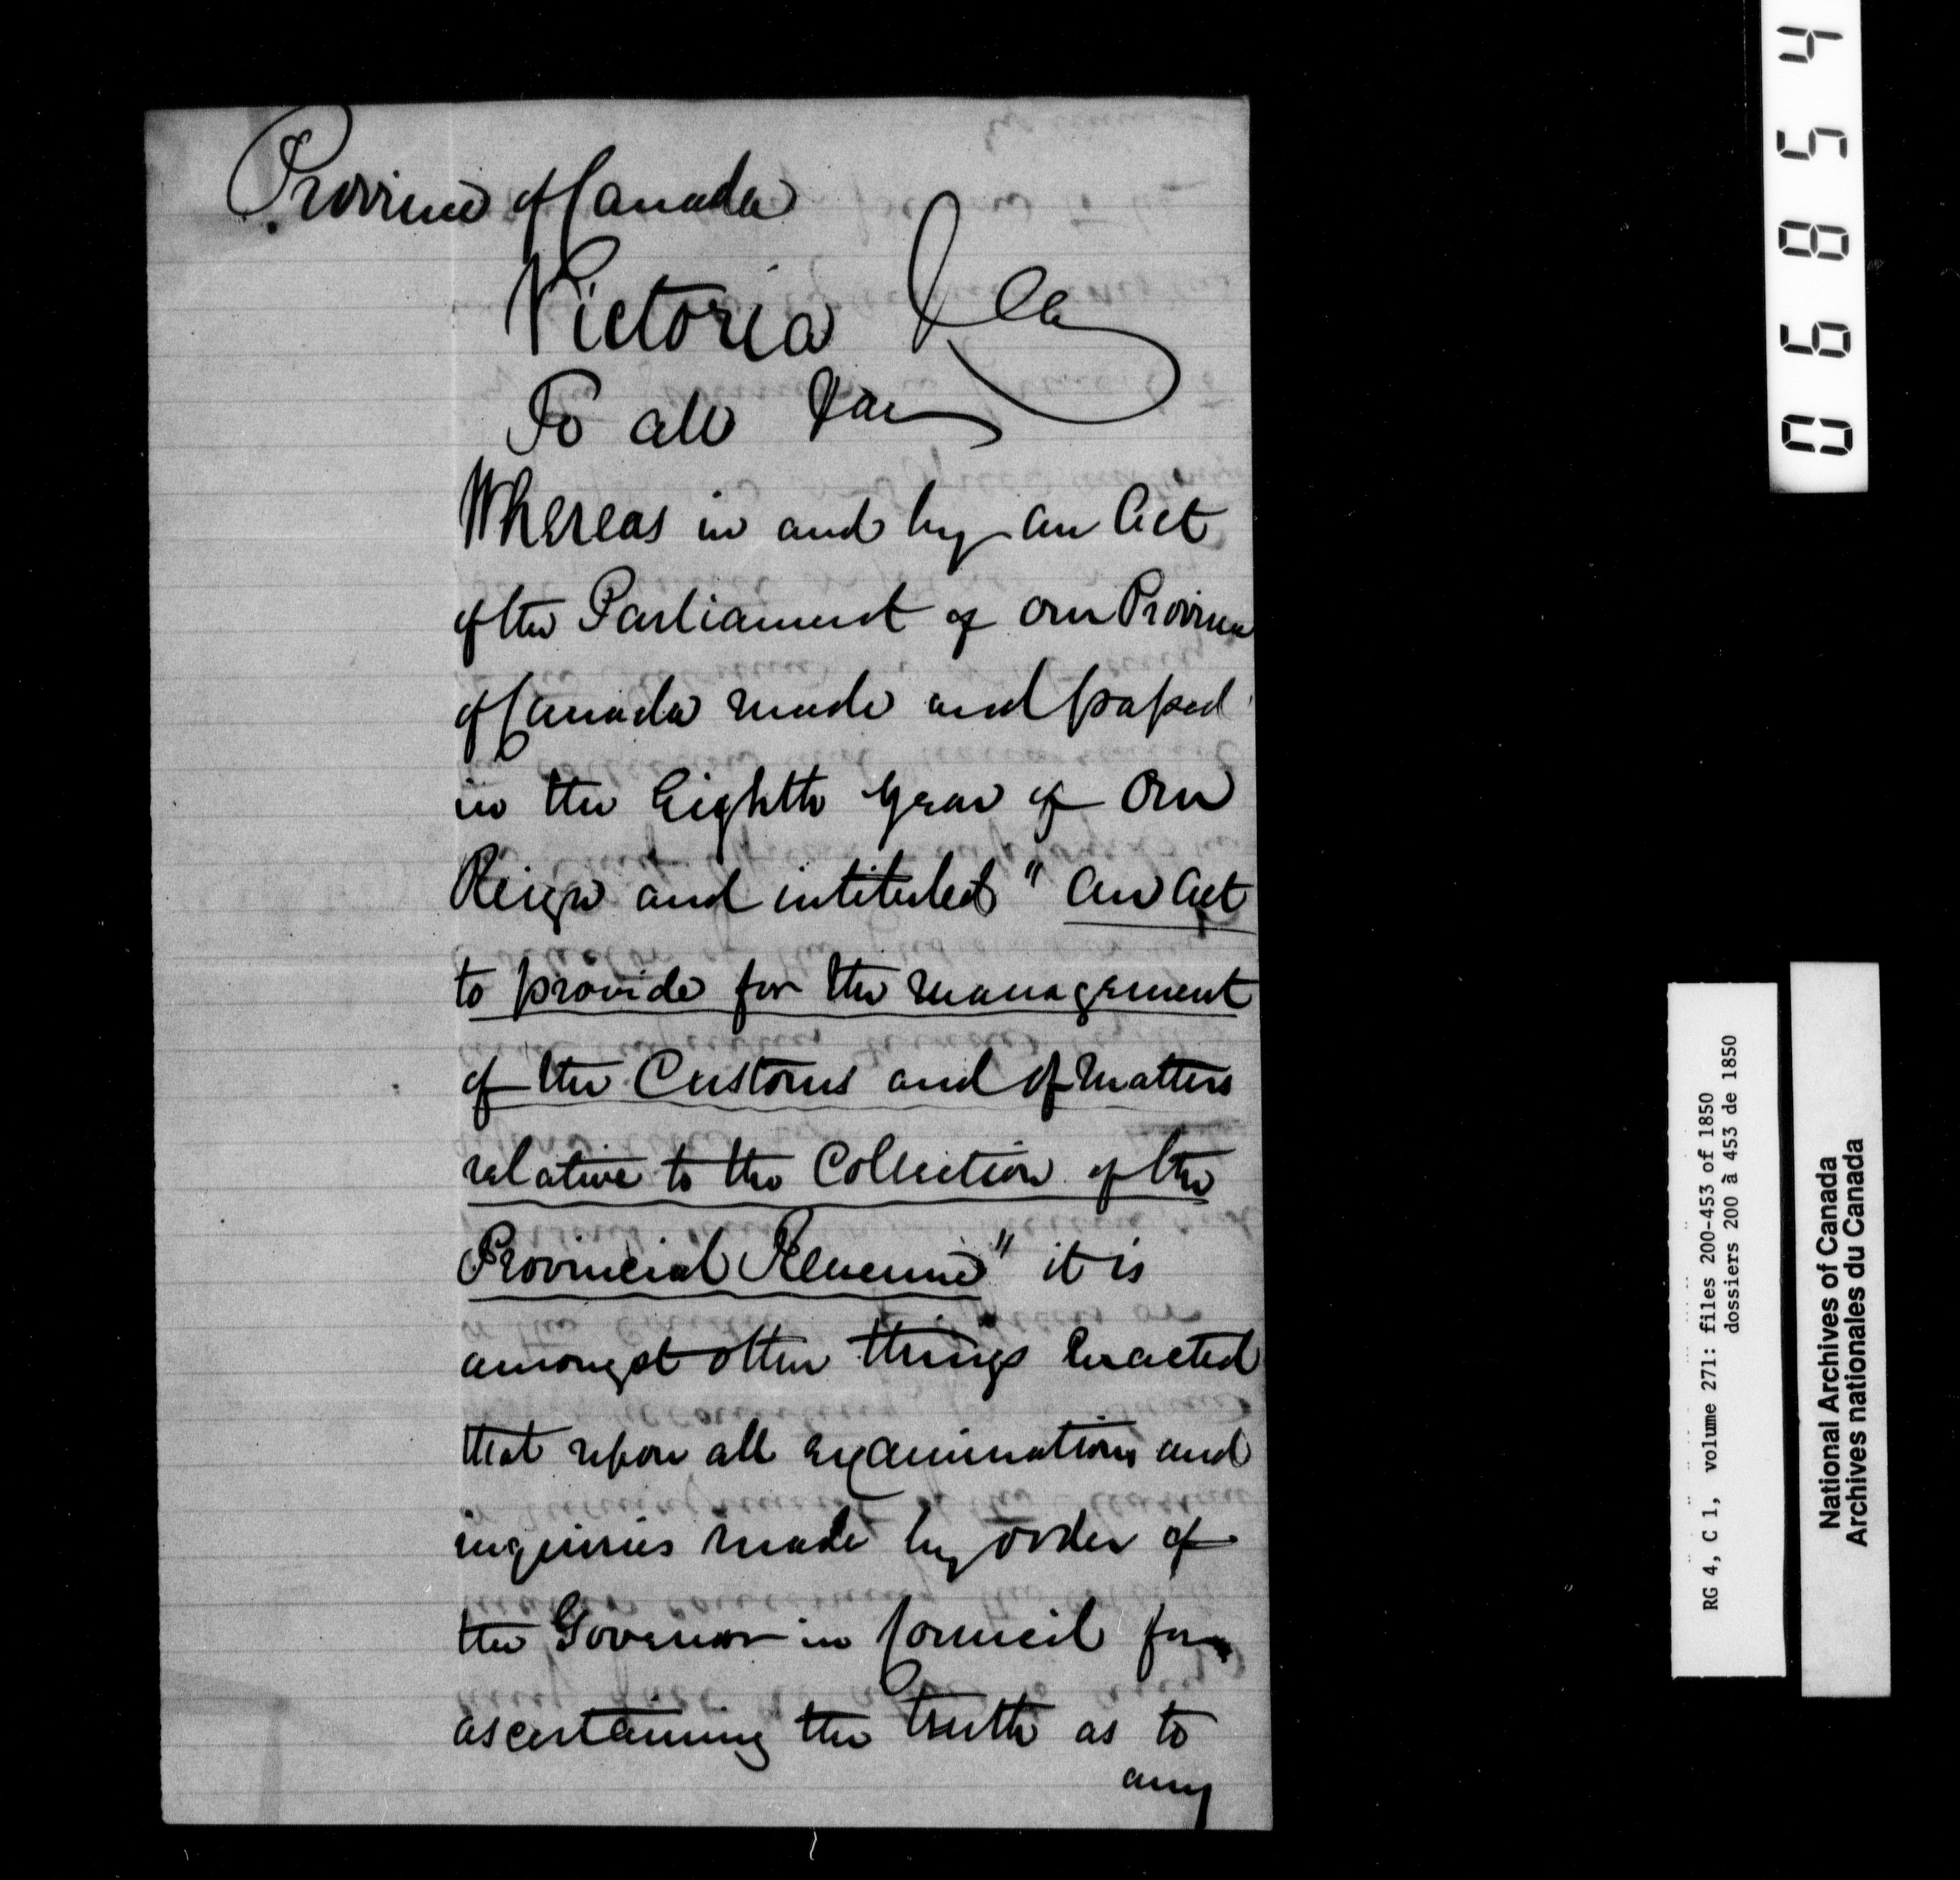 Province of Canada
Victoria &c
To all &c
Whereas in and by an Act
of the Parliament of our Province
of Canada made and passed
in the Eighth Year of Our
Reign and intituled " An Act
to provide for the management
of the Customs and of Matters
relative to the Collection of the
Provincial Revenue" it is
amongst other things Enacted
that upon all Examinations and
inquiries made by order of
the Governor in Council for
ascertaining the truth as to
any
06854
RG 4, C 1, volume 271: files 200-453 of 1850
dossiers 200 à 453 de 1850
National Archives of Canada
Archives nationales du Canada